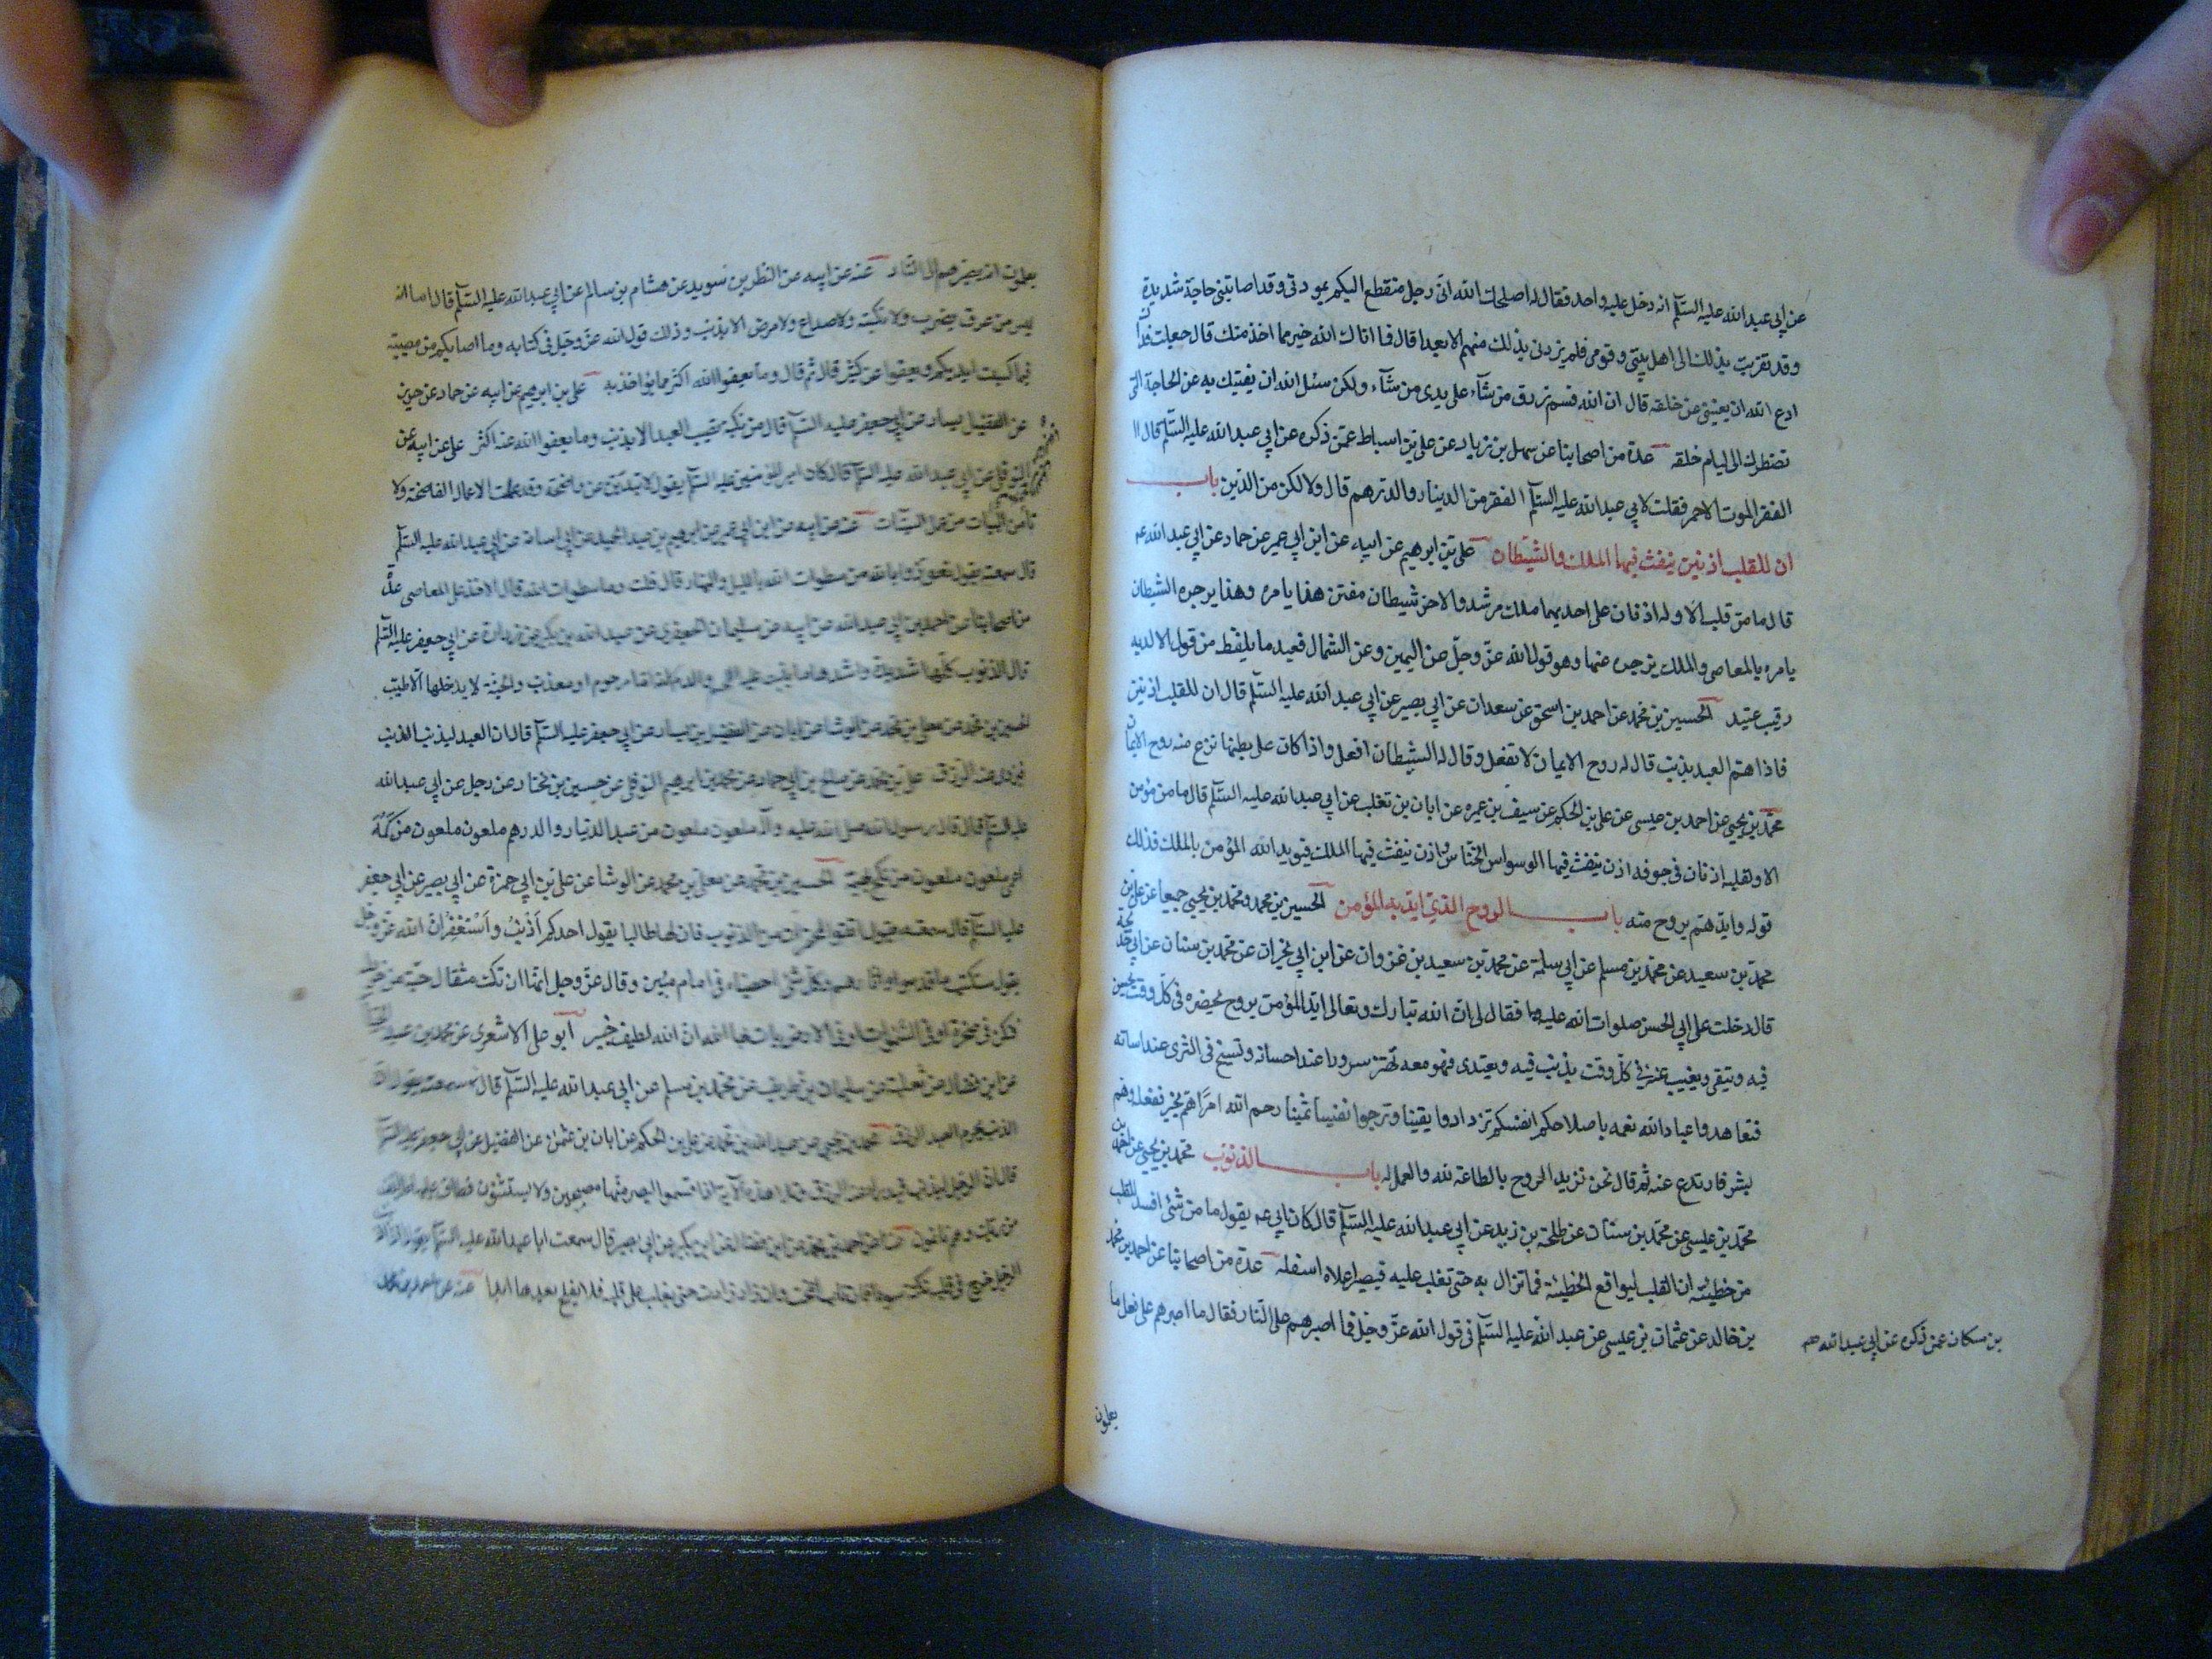 عن ابي عبد الله عليه السلم انه دخل عليه واحد فقال له اصلحك الله اني رجل منقطع اليكم بمودتي وقد اصابتني حاجة شديدة
وقد تقربت بذلك الى اهل بيتي وقومي فلم يزدني بذلك منهم الا بعدا قال فما اتاك الله خير مما اخذ منك قال جعلت فداك
ادع الله ان يغنيني عن خلقه قال ان الله قسم رزق من شآء على يدي من شآء ولكن سئل الله ان يغنيك به عن الحاجة التي
تضطرك الى ليام خلقه عدة من اصحابنا عن سهل بن زياد عن علي بن اسباط عمن ذكره عن ابي عبد الله عليه السلم قال
الفقر الموت الاحمر فقلت لابي عبد الله عليه السلم الفقر من الدينار والدرهم قال ولا لكن من الدين باب
ان للقلب اذنين ينفث فيهما الملك والشيطان علي بن ابرهيم عن ابيه عن ابن ابي عمير عن حماد عن ابي عبد الله عه
قال ما من قلب الا وله اذنان على احديهما ملك مرشد والاخر شيطان مفتن هذا يامره وهذا يزجره الشيطان
يامره بالمعاصي والملك يزجره عنها وهو قول الله عز وجل عن اليمين وعن الشمال قعيد ما يلفظ من قول الا لديه
رقيب عتيد الحسين بن محمد عن احمد بن اسحق عن سعدان عن ابي بصير عن ابي عبد الله عليه السلم قال ان للقلب اذنين
فاذا هتم العبد بذنب قال له روح الايمان لا تفعل وقال له الشيطان افعل واذا كان على بطنها نزع منه روح الايمان
محمد بن يحيى عن احمد بن عيسى عن علي بن الحكم عن سيف بن عميره عن ابان بن تغلب عن ابي عبد الله عليه السلم قال ما من مؤمن
الا ولقلبه اذنان في جوفه اذن ينفث فيها الوسواس الخناس واذن ينفث فيها الملك فيويد الله المؤمن بالملك فذلك
قوله وايدهم بروح منه باب الروح الذي ايد به المؤمن الحسين بن محمد ومحمد بن يحيى جميعا عن علي بن
محمد بن سعيد عن محمد بن مسلم عن ابي سلمة عن محمد بن سعيد بن غزوان عن ابن ابي نجران عن محمد بن سنان عن ابي خديجة
قال دخلت على ابي الحسن صلوات الله عليه فقال لي ان الله تبارك وتعالى ايد المؤمن بروح تحضره في كل وقت يحسن
فيه ويتقي ويغيب عنه في كل وقت يذنب فيه ويعتدي فهو معه تهتز سرورا عند احسانه وتسيخ في الثرى عند اساته
فتعاهدوا عباد الله نعمه باصلاحكم انفسكم تزدادوا يقينا وتربحوا نفيسا ثمينا رحم الله امرا هم بخير ففعله وهم
بشر فارتدع عنه ثم قال نحن نزيد الروح بالطاعة لله والعمل له باب الذنوب محمد بن يحيى عن احمد بن
محمد بن عيسى عن محمد بن سنان عن طلحة بن زيد عن ابي عبد الله عليه السلم قال كان ابي عه يقول ما من شئ افسد للقلب
من خطيئته ان القلب ليواقع الخطيئة فما تزال به حتى تغلب عليه فيصير اعلاه اسفله عدة من اصحابنا عن احمد بن محمد
بن خالد عن عثمان بن عيسى عن عبد الله عليه السلم في قول الله عز وجل فما اصبرهم على النار فقال ما اصبرهم على فعل ما
بن مسكان عمن ذكره عن ابي عبد الله عه
يعلمون
يعلمون انه يصيرهم الى النار عنه عن ابيه عن النظر بن سويد عن هشام بن سالم عن ابي عبد الله عليه السلم قال اما انه
ليس من عرق يضرب ولا نكبة ولا صداع ولا مرض الا بذنب وذلك قول الله عز وجل في كتابه وما اصابكم من مصيبة
فبما كسبت ايديكم ويعفوا عن كثير قال ثم قال وما يعفوا الله اكثر مما يؤاخذ به علي بن ابرهيم عن ابيه عن حماد عن حريز
عن الفضيل بن يسار عن ابي جعفر عليه السلم قال من نكبة تصيب العبد الا بذنب وما يعفوا الله عنه اكثر علي عن ابيه عن
النوفلي عن ابي عبد الله عليه السلم قال كان امير المؤمنين عليه السلم يقول لا تبدين عن واضحة وقد عملت الاعمال الفاضحة ولا
تامن البيات من عمل السيئات عنه عن ابيه عن ابن ابي عمير عن ابرهيم بن عبد الحميد عن ابي اسامة عن ابي عبد الله عليه السلم
قال سمعته يقول تعوذوا بالله من سطوات الله بالليل والنهار قال قلت وما سطوات الله قال الاخذ على المعاصي عدة
من اصحابنا عن احمد بن ابي عبد الله عن ابيه عن سليمان الجعفري عن عبد الله بن بكير عن زرارة عن ابي جعفر عليه السلم
قال الذنوب كلها شديدة واشدها ما نبت عليه اللحم والدم لانه اما مرحوم او معذب والجنة لا يدخلها الا طيب
الحسين بن محمد عن معلى بن محمد عن الوشا عن ابان عن الفضيل بن يسار عن ابي جعفر عليه السلم قال ان العبد ليذنب الذنب
فيزوى عنه الرزق علي بن محمد عن صالح بن ابي حماد عن محمد بن ابرهيم النوفلي عن حسين بن مختار عن رجل عن ابي عبد الله
عليه السلم قال قال رسول الله صلى الله عليه وآله ملعون ملعون من عبد الدينار والدرهم ملعون ملعون من كمه
اعمى ملعون ملعون من نكح بهيمة الحسين بن محمد عن معلى بن محمد عن الوشا عن علي بن ابي حمزة عن ابي بصير عن ابي جعفر
عليه السلم قال سمعته يقول اتقوا المحقرات من الذنوب فان لها طالبا يقول احدكم اذنب واستغفر ان الله عز وجل
يقول سنكتب ما قدموا واثارهم وكل شئ احصيناه في امام مبين وقال عز وجل انها ان تك مثقال حبة من خردل
فتكن في صخرة او في السموات او في الارض يات بها الله ان الله لطيف خبير ابو علي الاشعري عن محمد بن عبد الجبار
عن ابن فضال عن ثعلبة عن سليمان بن طريف عن محمد بن مسلم عن ابي عبد الله عليه السلم قال سمعته يقول ان
الذنب يحرم العبد الرزق محمد بن يحيى عن عبد الله بن محمد عن علي بن الحكم عن ابان بن عثمن عن الفضيل عن ابي جعفر عليه السلم
قال ان الرجل ليذنب الذنب فيدرا عنه الرزق وتلا هذه الآية اذا اقسموا ليصرمنها مصبحين ولا يستثنون فطاف عليها طائف
من ربك وهم نائمون عن احمد بن محمد عن ابن فضال عن ابن بكير عن ابي بصير قال سمعت ابا عبد الله عليه السلم يقول اذا اذنب
الرجل خرج في قلبه نكتة سوداء فان تاب انمحت وان زاد زادت حتى يغلب على قلبه فلا يفلح بعدها ابدا عنه عن